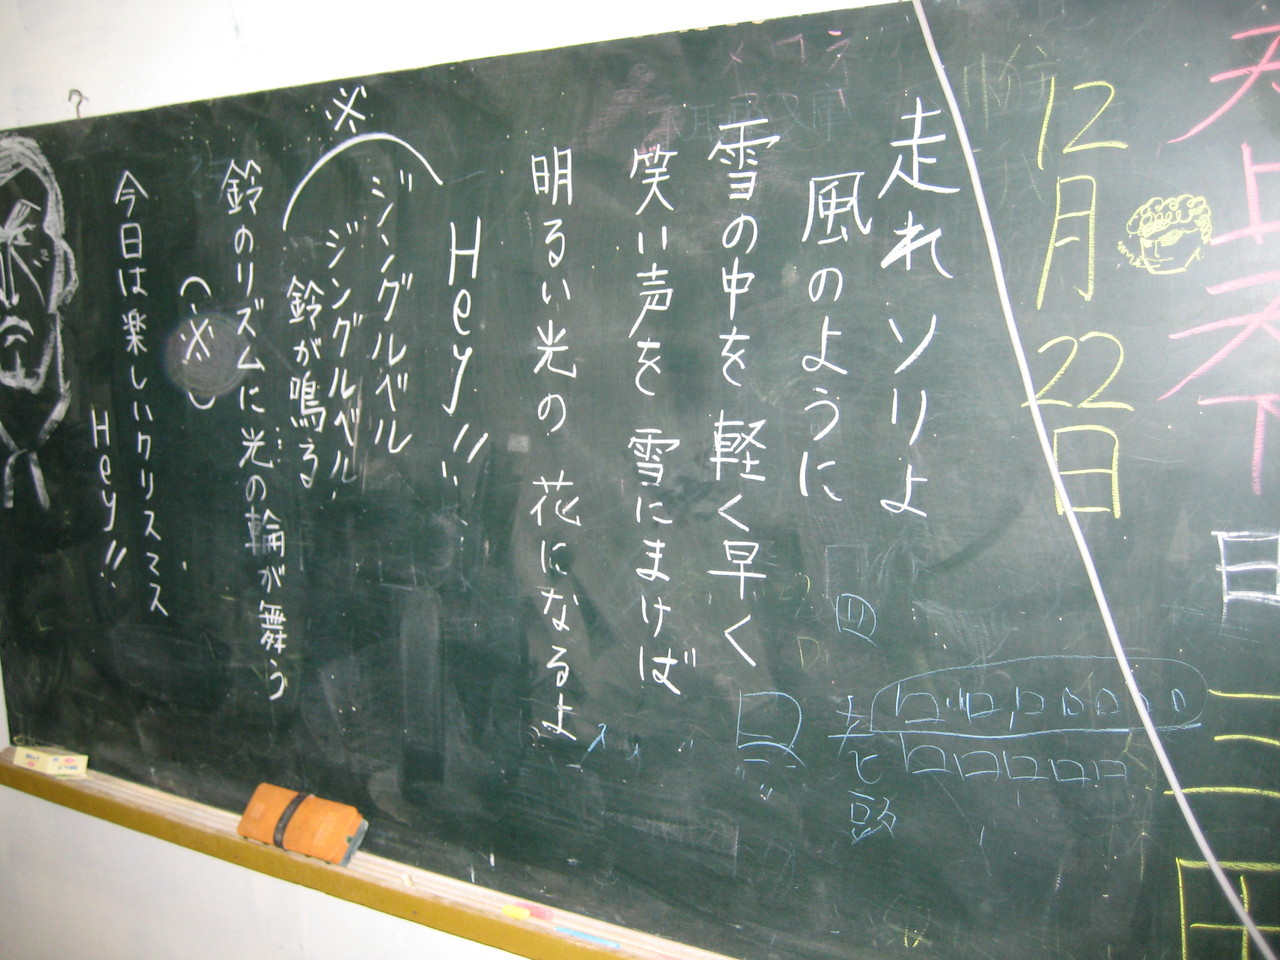 天上天下
日
12月22日
走れソリよ
風のように
雪の中を 軽く早く
笑い声を 雪にまけば
明るい光の 花になるよ
Hey!!
※
ジングルベル
ジングルベル
鈴が鳴る
鈴のリズムに光の輪が舞う
(※)
今日は楽しいクリスマス
Hey!!
頭